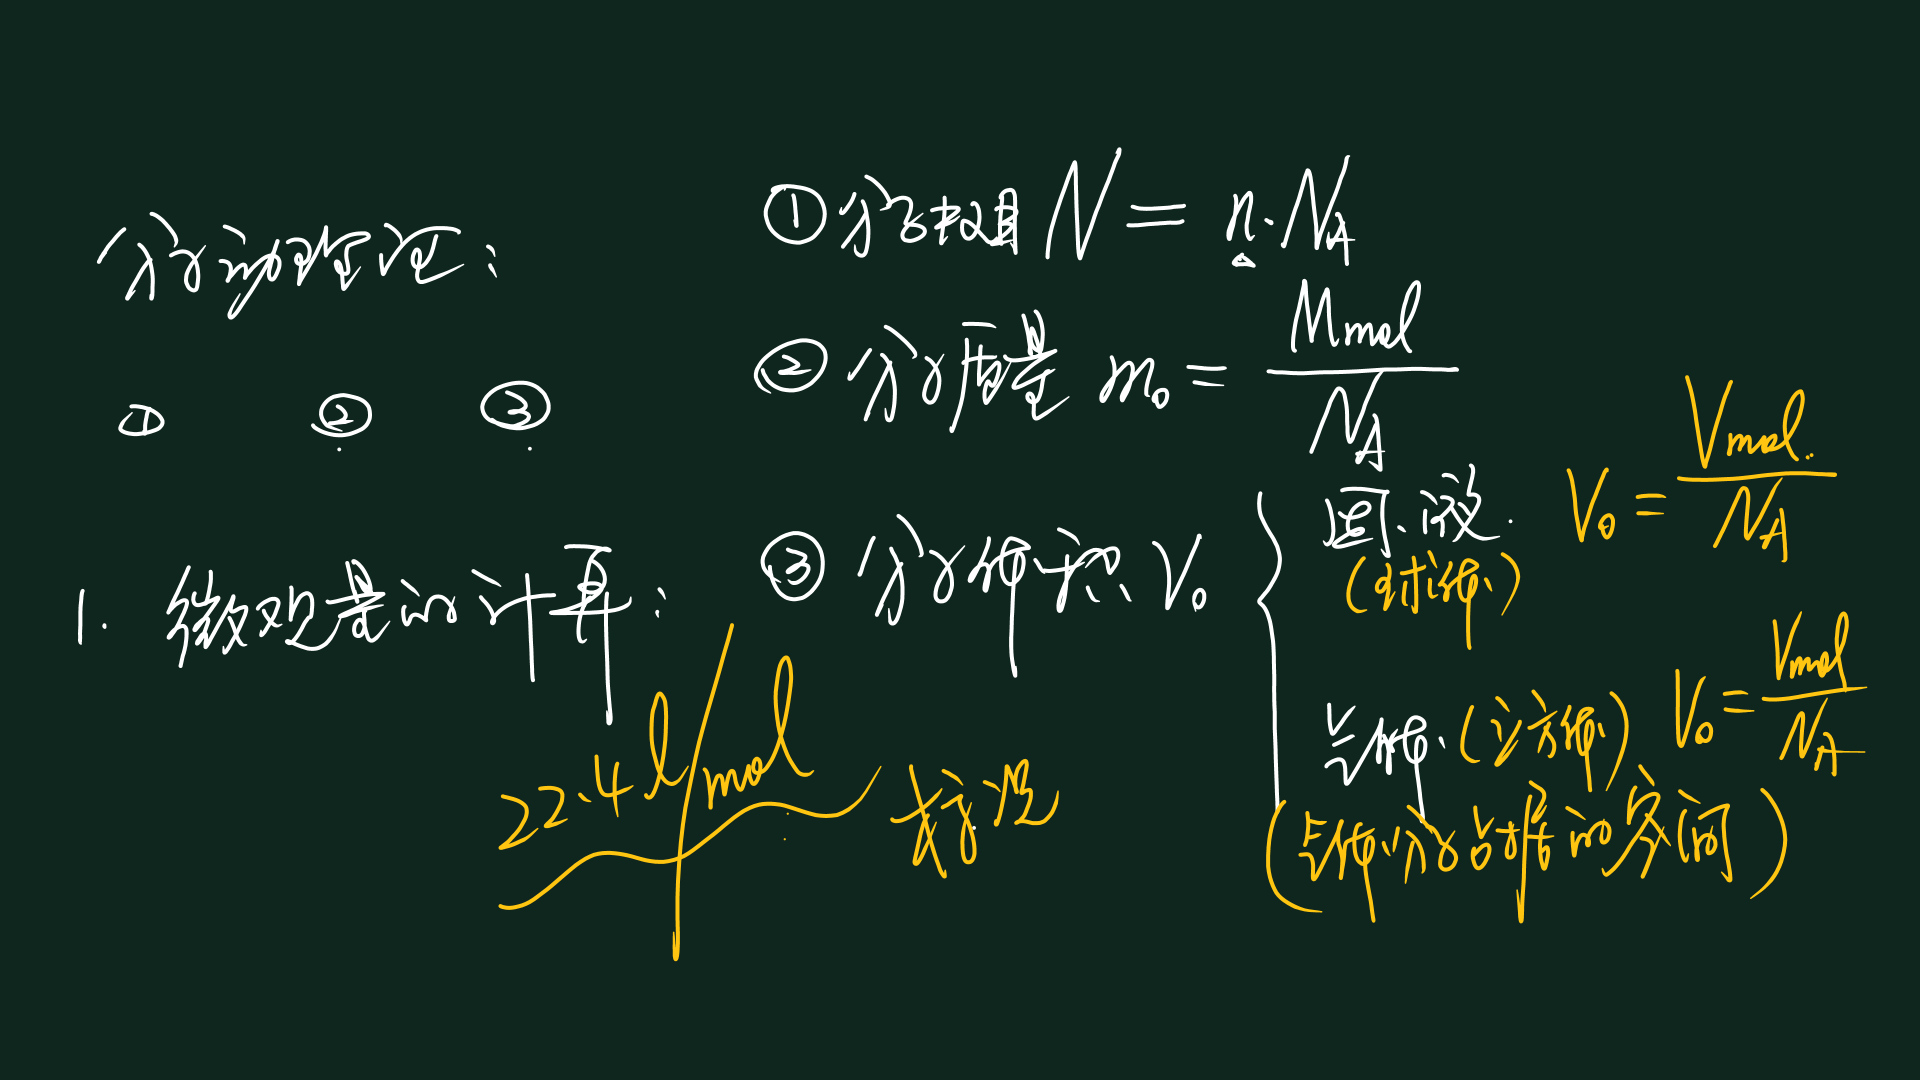 分子动理论：
① ② ③
1. 微观量的计算：
① 分子数目 N = n·N_A
② 分子质量 m₀ = Mmol / N_A
③ 分子体积 V₀
固、液. (球体) V₀ = Vmol. / N_A
气体. (立方体) V₀ = Vmol / N_A
(气体分子占据的空间)
22.4 l/mol 标况